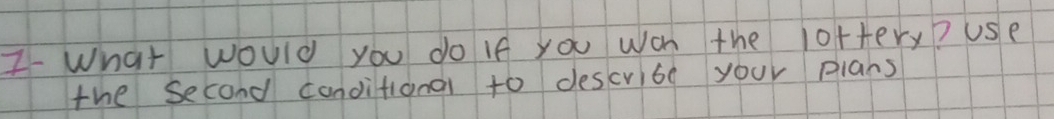 1- What would you do if you won the lottery? use
the second conditional to describe your plans